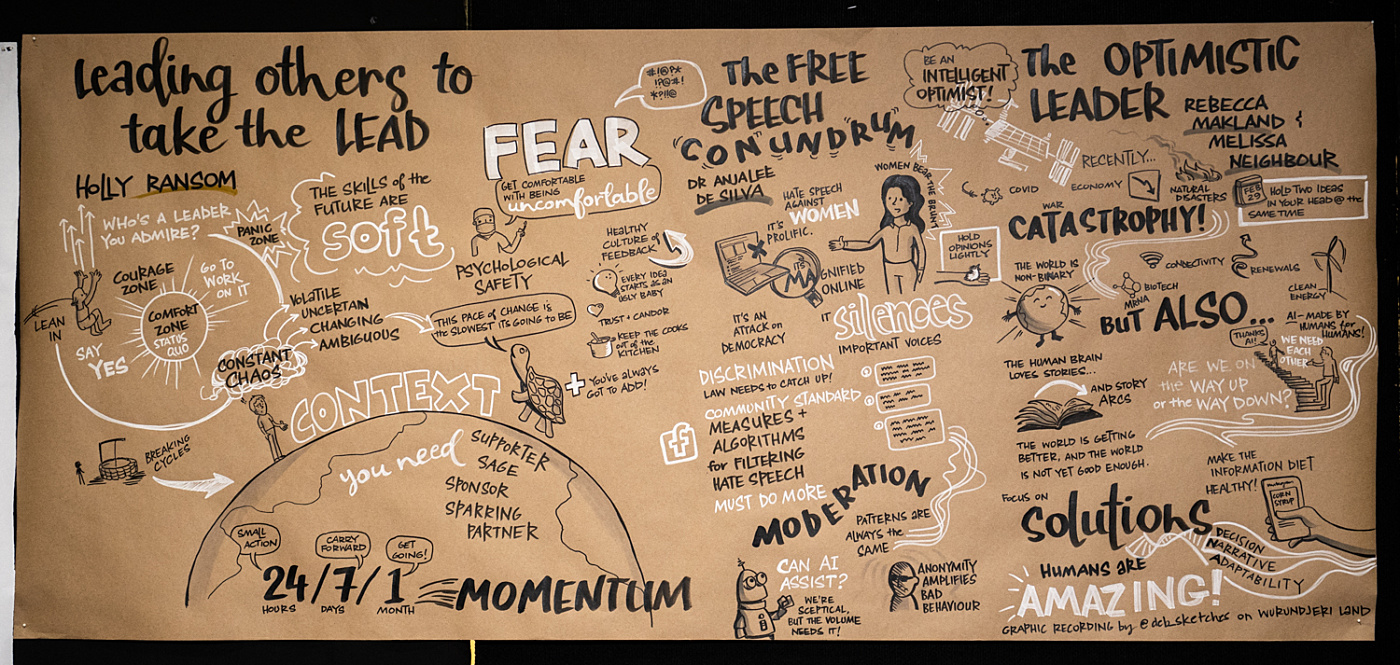 Leading others to
take the LEAD
HOLLY RANSOM
WHO'S A LEADER
YOU ADMIRE?
PANIC
ZONE
COURAGE
ZONE
GO TO
WORK
ON IT
COMFORT
ZONE
STATUS
QUO
LEAN
IN
SAY
YES
CONSTANT
CHAOS
VOLATILE
UNCERTAIN
CHANGING
AMBIGUOUS
BREAKING
CYCLES
THE SKILLS of the
FUTURE ARE
soft
FEAR
#!@?*
!?@#!
*?!!@
GET COMFORTABLE
WITH BEING
uncomfortable
PSYCHOLOGICAL
SAFETY
HEALTHY
CULTURE of
FEEDBACK
EVERY IDEA
STARTS AS AN
UGLY BABY
TRUST + CANDOR
KEEP THE COOKS
OUT of the
KITCHEN
THIS PACE of CHANGE IS
the SLOWEST IT'S GOING to BE
+ YOU'VE ALWAYS
GOT TO ADD!
CONTEXT
you need
SUPPORTER
SAGE
SPONSOR
SPARRING
PARTNER
SMALL
ACTION
CARRY
FORWARD
GET
GOING!
24/7/1
HOURS DAYS MONTH
MOMENTUM
The FREE
SPEECH
"CONUNDRUM"
DR ANJALEE
DE SILVA
HATE SPEECH
AGAINST
WOMEN
WOMEN BEAR THE BRUNT
IT'S
PROLIFIC.
IT'S
MAGNIFIED
ONLINE
HOLD
OPINIONS
LIGHTLY
IT silences
IMPORTANT VOICES
IT'S AN
ATTACK on
DEMOCRACY
DISCRIMINATION
LAW NEEDS to CATCH UP!
COMMUNITY STANDARD
MEASURES +
ALGORITHMS
for FILTERING
HATE SPEECH
MUST DO MORE
f
MODERATION
PATTERNS ARE
ALWAYS the
SAME
CAN AI
ASSIST?
WE'RE
SCEPTICAL,
BUT THE VOLUME
NEEDS IT!
ANONYMITY
AMPLIFIES
BAD
BEHAVIOUR
BE AN
INTELLIGENT
OPTIMIST!
The OPTIMISTIC
LEADER
REBECCA
MAKLAND &
MELISSA
NEIGHBOUR
RECENTLY...
COVID
ECONOMY
NATURAL
DISASTERS
FEB
29
HOLD TWO IDEAS
IN YOUR HEAD @ the
SAME TIME
WAR
CATASTROPHY!
THE WORLD IS
NON-BINARY
CONNECTIVITY
RENEWALS
BIOTECH
MRNA
CLEAN
ENERGY
BUT ALSO...
AI-MADE BY
HUMANS for
HUMANS!
THANKS
AI!
WE NEED
EACH
OTHER
THE HUMAN BRAIN
LOVES STORIES...
AND STORY
ARCS
ARE WE ON
the WAY UP
or the WAY DOWN?
THE WORLD IS GETTING
BETTER, AND THE WORLD
IS NOT YET GOOD ENOUGH.
MAKE THE
INFORMATION DIET
HEALTHY!
CORN
SYRUP
FOCUS ON
solutions
DECISION
NARRATIVE
ADAPTABILITY
HUMANS ARE
AMAZING!
GRAPHIC RECORDING by @deb_sketches on WURUNDJERI LAND